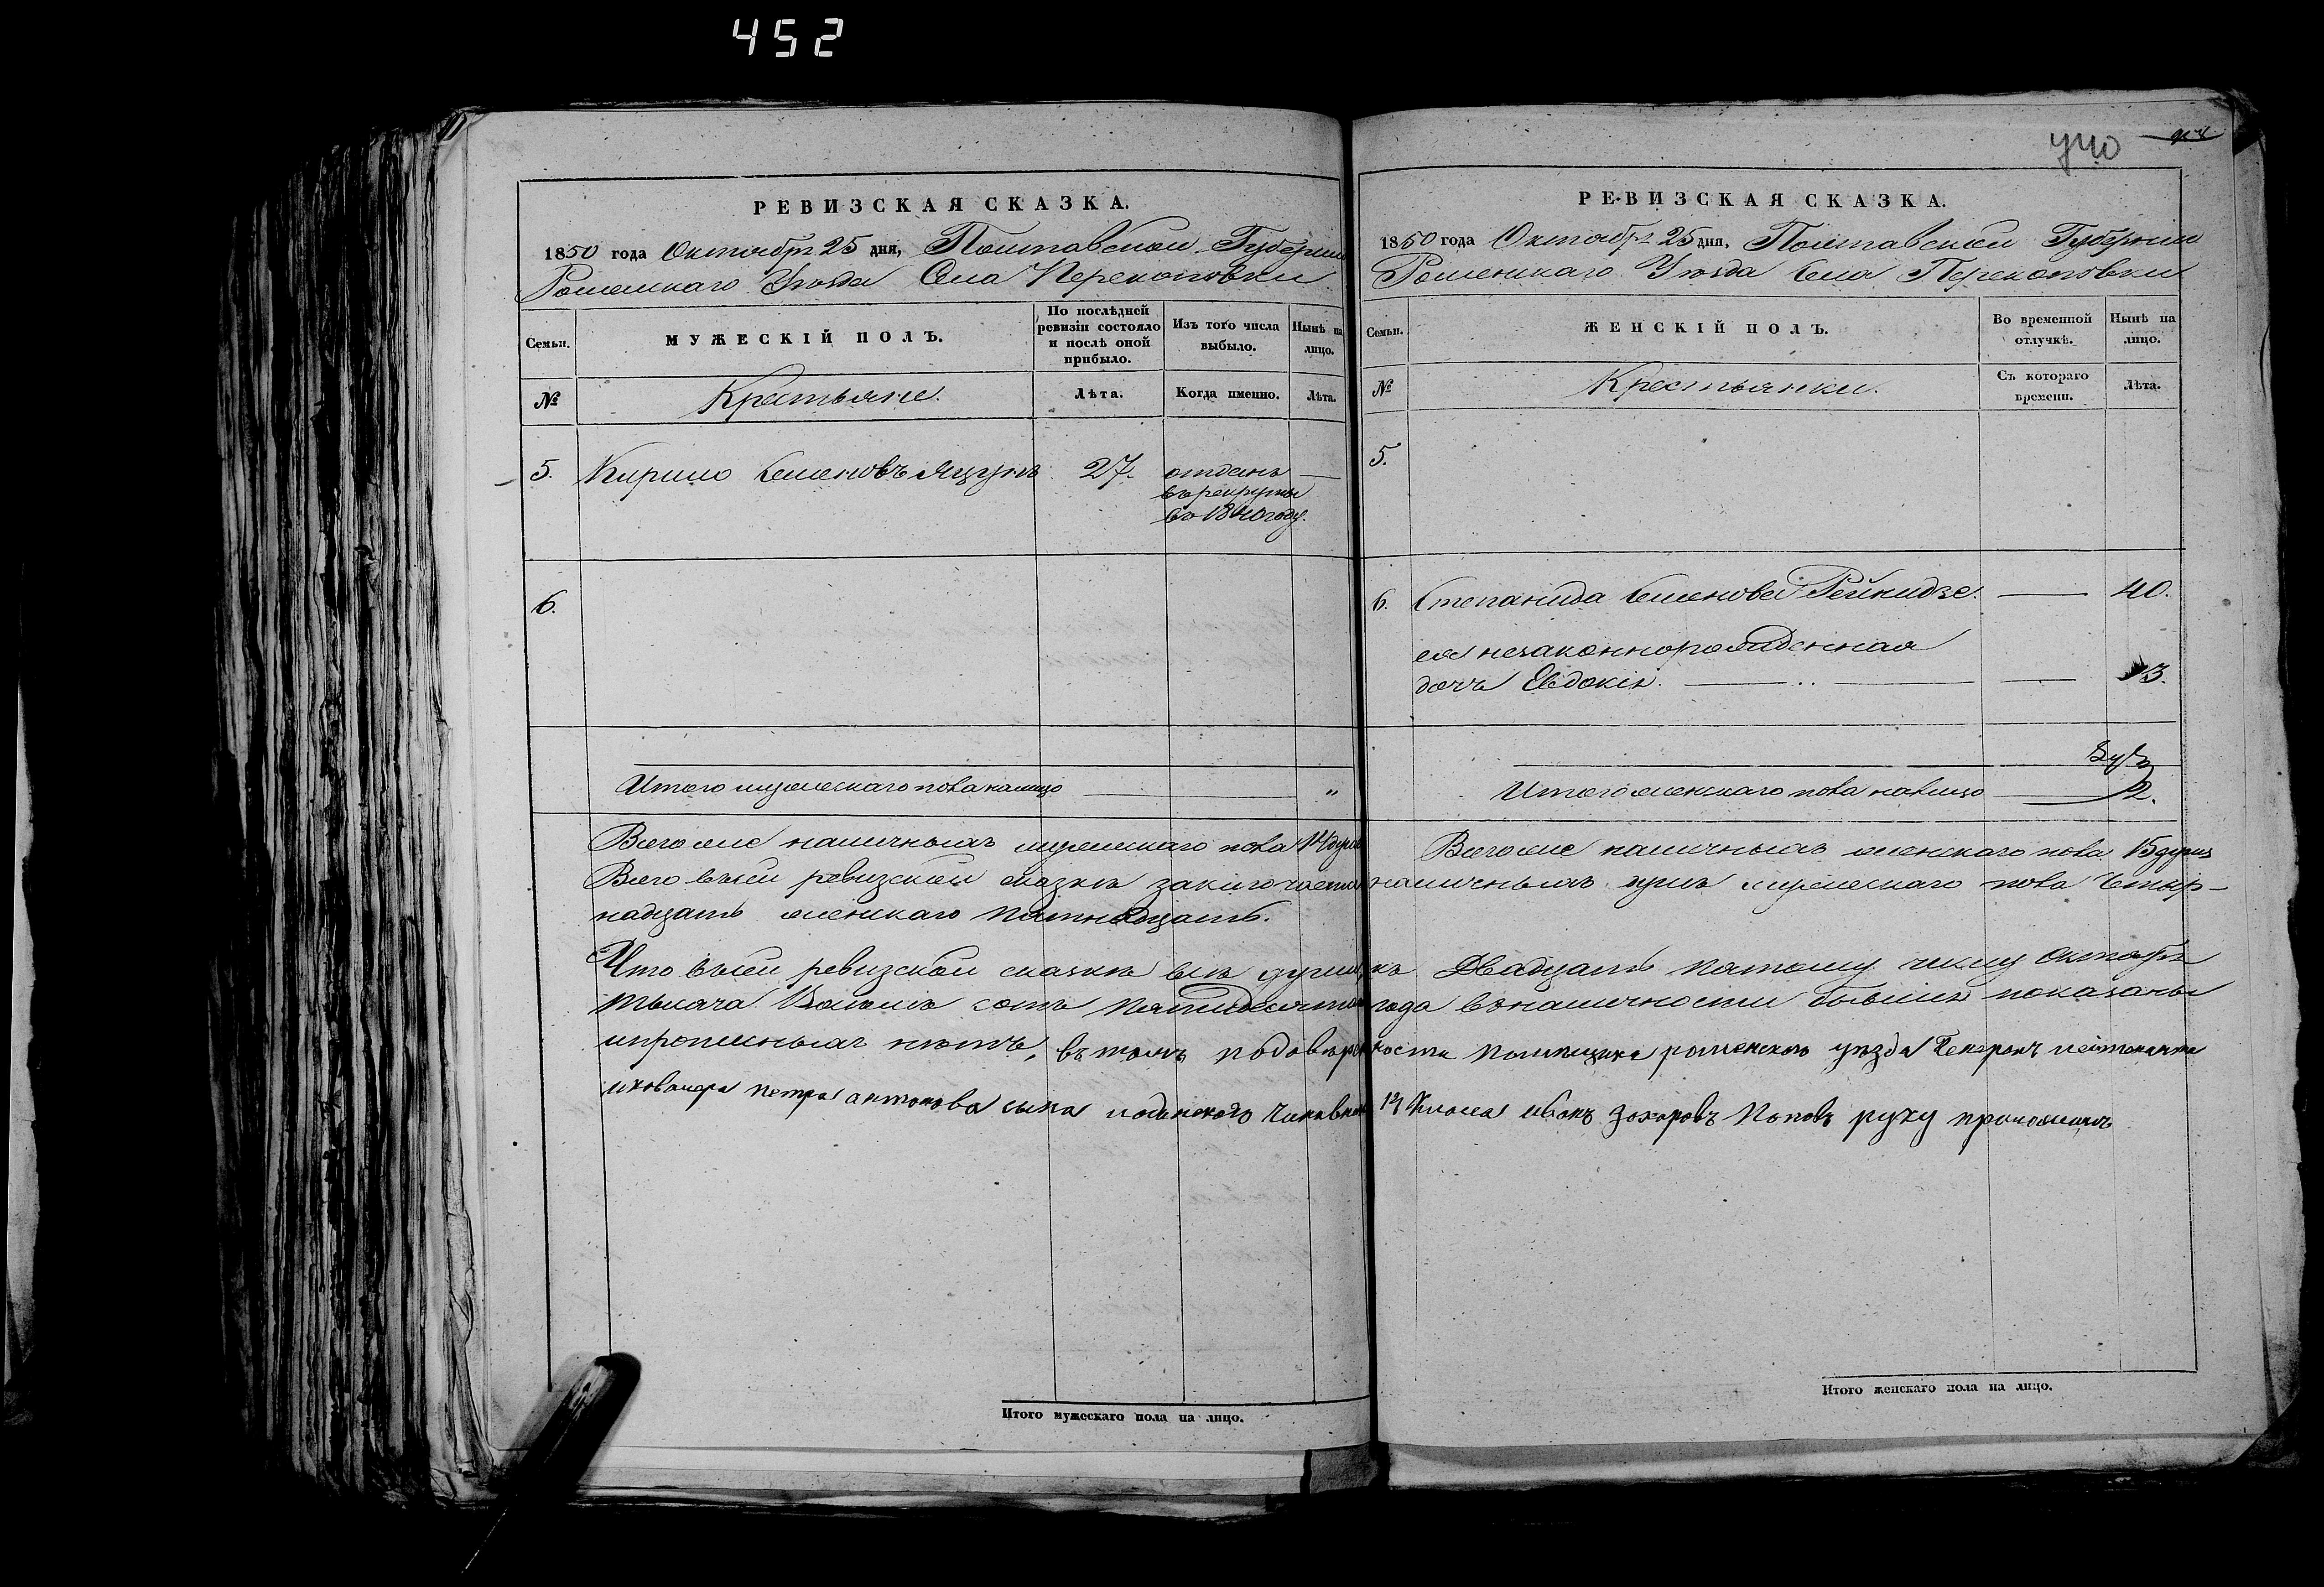 452
440
РЕВИЗСКАЯ СКАЗКА.
1850 года Октября 25 дня, Полтавской Губерніи
Роменскаго Уѣзда Села Перекоповки
Семьи.
МУЖЕСКІЙ ПОЛЪ.
По послѣдней ревизіи состояло и послѣ оной прибыло.
Изъ того числа выбыло.
Нынѣ на лицо.
№
Крестьяне.
Лѣта.
Когда именно.
Лѣта.
5. Кирило Семеновъ Яцунъ 27. отданъ —
въ рекруты
въ 1840 году.
6.
Итого мужескаго пола налицо — „
Всего же наличныхъ мужескаго пола 14 душъ
РЕВИЗСКАЯ СКАЗКА.
1850 года Октября 25 дня, Полтавской Губерніи
Роменскаго Уѣзда Села Перекоповки
Семьи.
ЖЕНСКІЙ ПОЛЪ.
Во временной отлучкѣ.
Нынѣ на лицо.
№
Крестьянки.
Съ котораго времени.
Лѣта.
5.
6. Степанида Семенова — 40.
ея незаконнорожденная
дочь Евдокія. — 13.
Итого женскаго пола налицо — 2.
Всего же наличныхъ женскаго пола 15 душъ
Всего въ сей ревизской сказкѣ заключается наличныхъ душъ мужескаго пола четыр-
надцать женскаго пятнадцать.
Что въ сей ревизской сказкѣ всѣ души, къ Двадцать пятому числу Октября
тысяча восемь сотъ пятидесятаго года въ наличности бывшія показаны
и прописныхъ нѣтъ, въ томъ по довѣренности помещика роменского уезда
петра антонова сына 14 класса иванъ захаровъ Поповъ руку приложилъ
Итого мужескаго пола на лицо.
Итого женскаго пола на лицо.